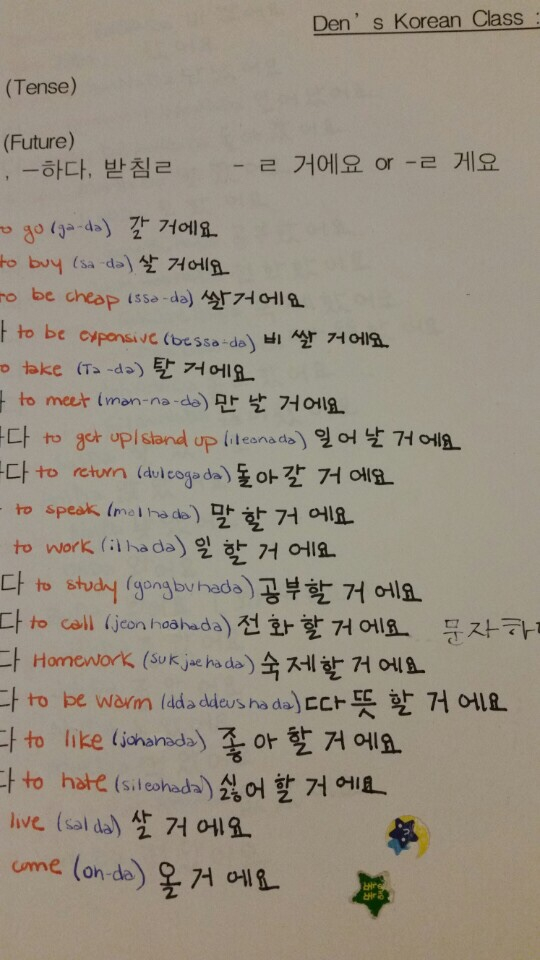 Den's Korean Class :
(Tense)
(Future)
, -하다, 받침ㄹ - ㄹ 거에요 or -ㄹ 게요
to go (ga-da) 갈 거에요
to buy (sa-da) 살 거에요
to be cheap (ssa-da) 쌀 거에요
to be expensive (bessa-da) 비 쌀 거에요
to take (Ta-da) 탈 거에요
to meet (man-na-da) 만 날 거에요
다 to get up/stand up (ileonada) 일 어 날 거 에요
다 to return (duleogada) 돌 아 갈 거 에요
to speak (malhada) 말 할 거 에요
to work (ilhada) 일 할 거 에요
다 to study (gongbuhada) 공부할 거 에요
다 to call (jeonhoahada) 전 화 할 거 에요 문자하
다 Homework (sukjaehada) 숙제할 거 에요
다 to be warm (ddaddeushada) 따 뜻 할 거 에요
다 to like (johahada) 좋 아 할 거 에요
다 to hate (sileohada) 싫어 할 거 에요
live (salda) 살 거 에요
come (oh-da) 올 거 에요